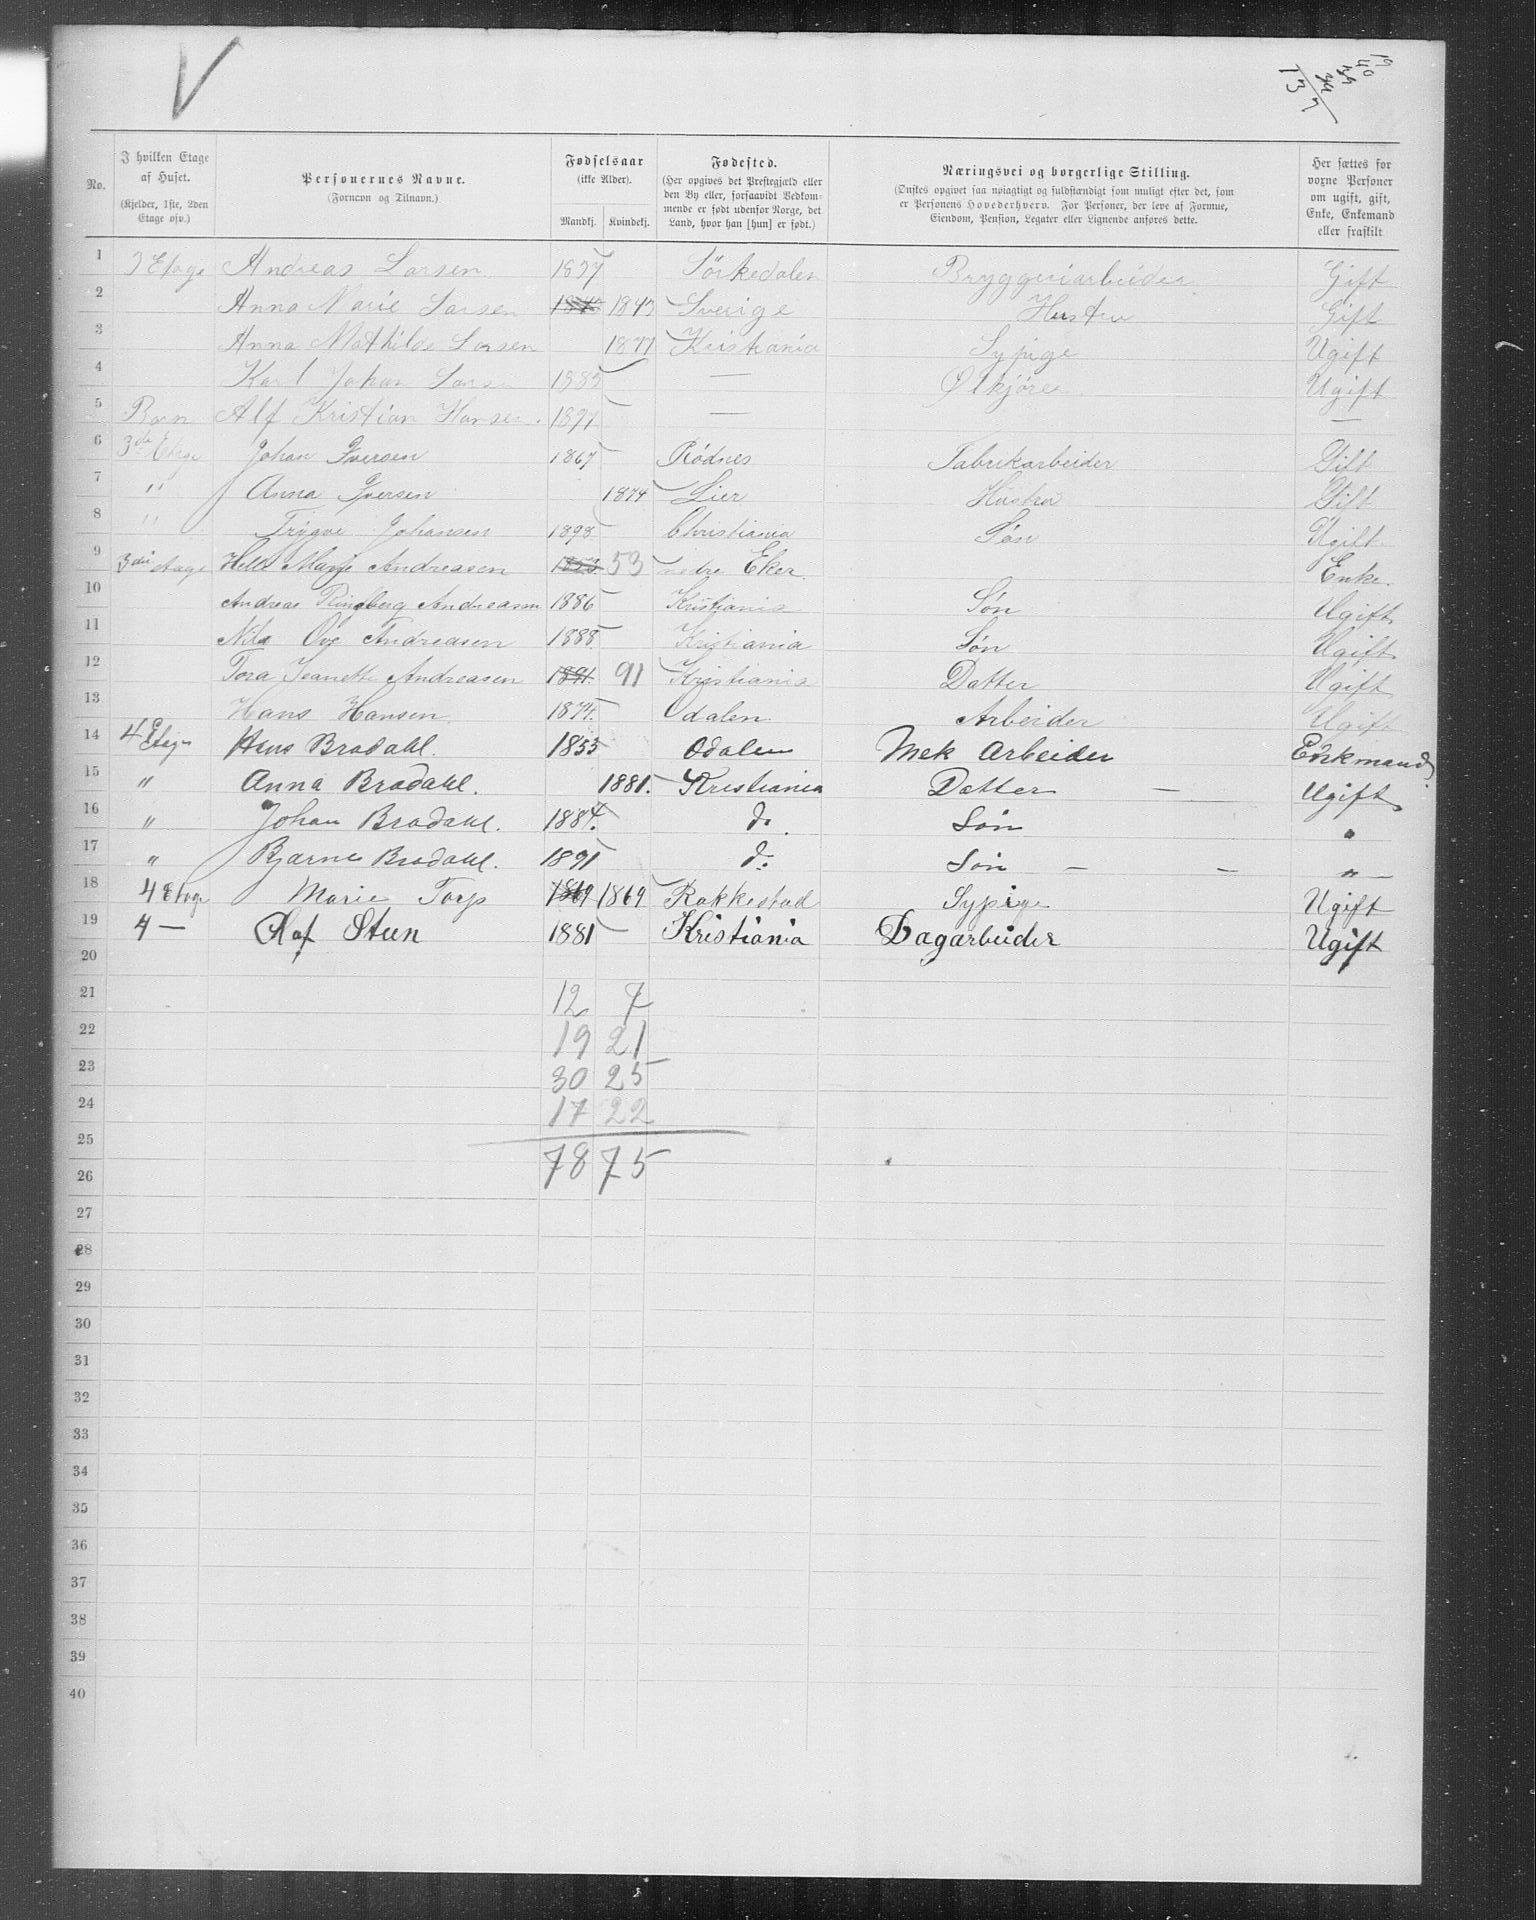 V
19
40
39
39
137
No. | I hvilken Etage af Huset. (Kjelder, 1ste, 2den Etage osv.) | Personernes Navne. (Fornavn og Tilnavn.) | Fødselsaar (ikke Alder). Mandkj. | Kvindekj. | Fødested. (Her opgives det Prestegjæld eller den By eller, forsaavidt Vedkommende er født udenfor Norge, det Land, hvor han [hun] er født.) | Næringsvei og borgerlige Stilling. (Ønskes opgivet saa nøiagtigt og fuldstændigt som muligt efter det, som er Personens Hovederhverv. For Personer, der leve af Formue, Eiendom, Pension, Legater eller Lignende anføres dette. | Her sættes for voxne Personer om ugift, gift, Enke, Enkemand eller fraskilt
1 3 Etage Andreas Larsen 1837 Sörkedalen Bryggeriarbeider Gift
2 Anna Marie Larsen 1843 Sverige Hustru Gift
3 Anna Mathilde Larsen 1877 Kristiania Sypige Ugift
4 Karl Johan Larsen 1885 — Ølkjører Ugift
5 Barn Alf Kristian Hansen. 1897 — —
6 3de Etage Johan Iversen 1867 Rödnes Fabrikarbeider Gift
7 " Anna Iversen 1874 Lier Hustru Gift
8 " Trygve Johansen 1898 Christiania Søn Ugift
9 3die etage Marje Andreasen 1853 53 nedre Eker. Enke.
10 Andreas Ringberg Andreasen 1886 Kristiania Søn Ugift
11 Nils Ove Andreasen 1888 Kristiania Søn Ugift
12 Tora Jeanette Andreasen 1891. 91 Kristiania Datter Ugift
13 Hans Hansen 1874. Odalen. Arbeider Ugift
14 4 Etage Hans Bradahl. 1855 Odalen Mek Arbeider Enkmand
15 " Anna Bradahl. 1881. Kristiania Datter — Ugift
16 " Johan Bradahl. 1884. do Søn "
17 " Bjarne Bradahl. 1891 do Søn — — " —
18 4 Etage Marie Torp 1869 1869 Rakkestad Sypige Ugift
19 4 — Olaf Steen 1881 Kristiania Dagarbeider Ugift
20
21 12 7
22 19 21
23 30 25
24 17 22
25
26 78 75
27
28
29
30
31
32
33
34
35
36
37
38
39
40